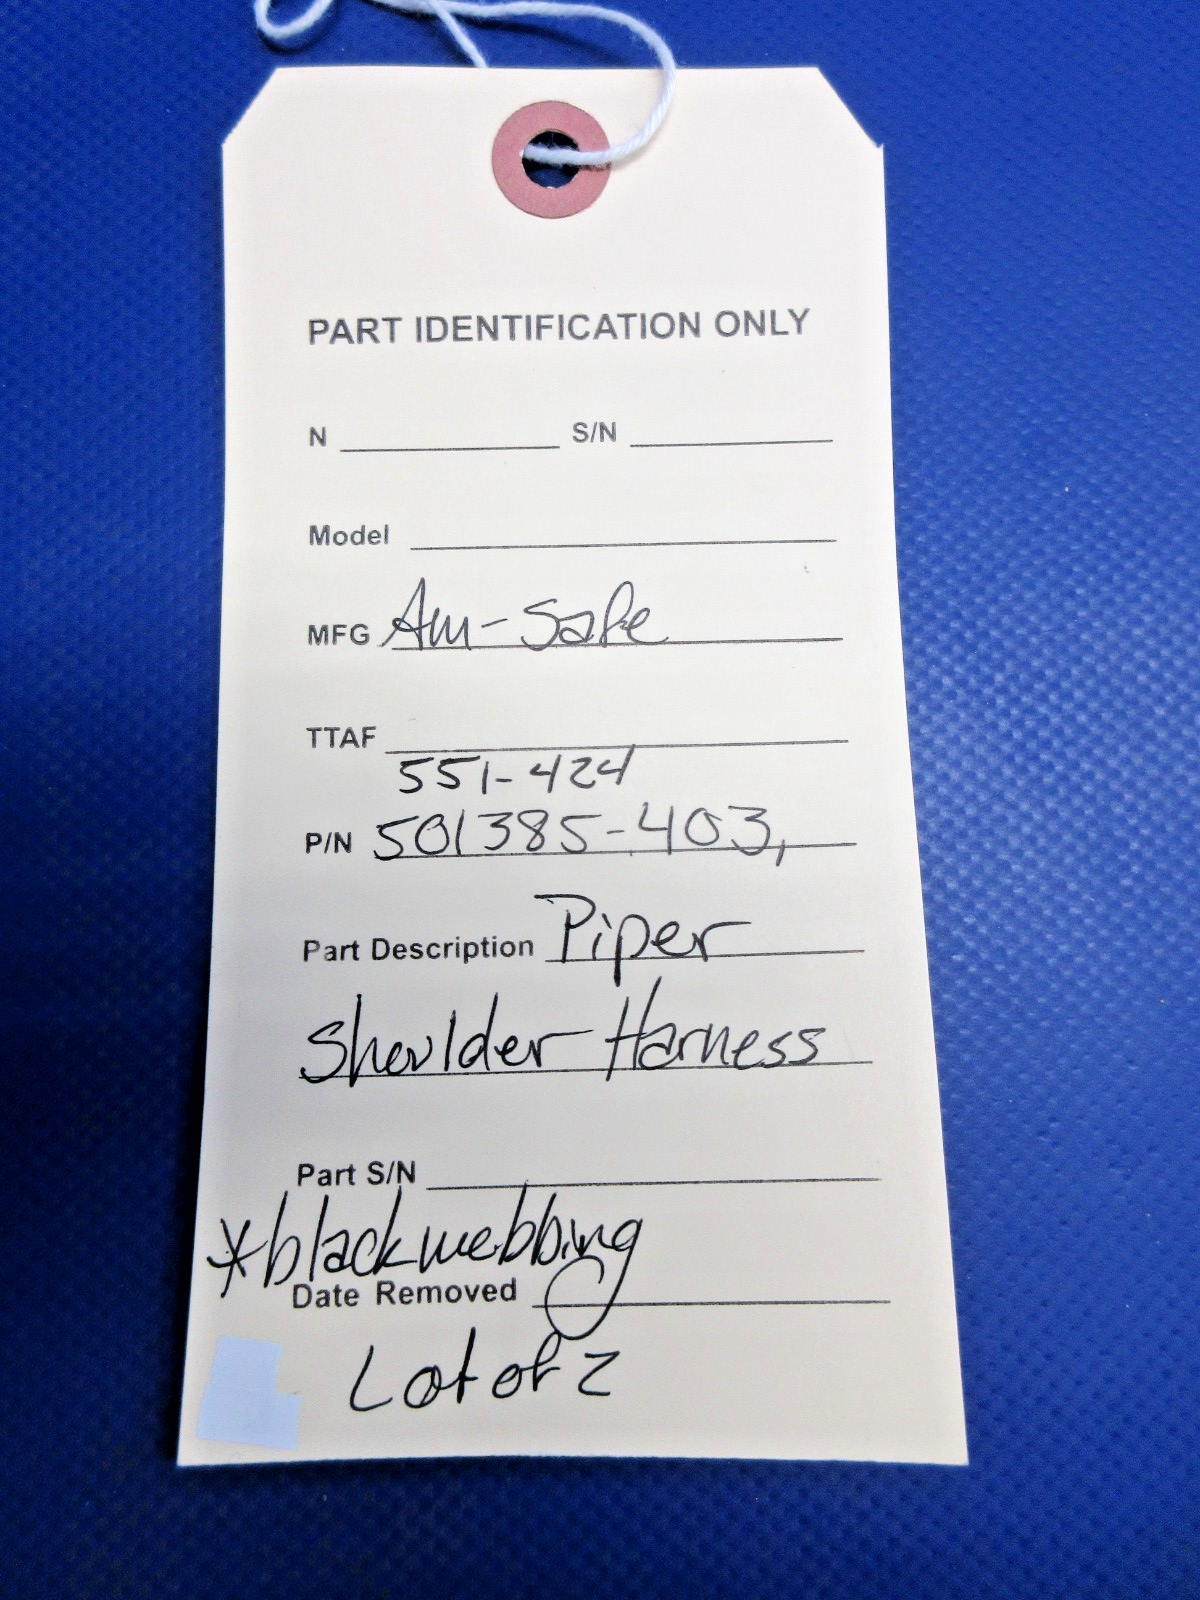 PART IDENTIFICATION ONLY
N S/N
Model
MFG Am-Safe
TTAF
551-424
P/N 501385-403,
Part Description Piper
Shoulder Harness
Part S/N
*black webbing
Date Removed
Lot of 2